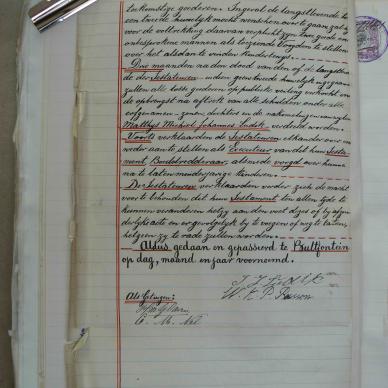 toekomstige goederen. Ingeval de langstlevende tot
een tweede huwelijk mocht wenschen over te gaan zal
voor de voltrekking daarvan verplicht zyn twee goede en
onbesproken mannen als toeziende Voogden te stellen
over het alsdan te vinden kinderdeel.
Drie maanden na den dood van den of de langstleven
de der Testateuren indien geen tweede huwelijk
zullen alle losse goederen op publieke veiling verkocht en
de opbrengst na aftrek van alle schulden onder alle
erfgenamen - zoons, dochters en de nakomelingen van
Matthys Michiel Johannes verdeeld worden.
Voorts verklaarden de Testateuren elkander over en
weder aan te stellen als Executeur van dit hun Testa-
ment, Boedelredderaar, alsmede voogd over hunne
na te laten minderjarige kinderen.
De Testateuren verklaarden verder zich de macht
voor te behouden dit hun Testament ten allen tyde te
kunnen veranderen hetzy aan den voet dezes of by afzon
derlijke acte en ongevoelyk by te voegen of weg te laten,
hetgeen zy te rade zullen worden.
Aldus gedaan en gepasseerd te Bultfontein
op dag, maand en jaar voornoemd.
Als Getuigen: